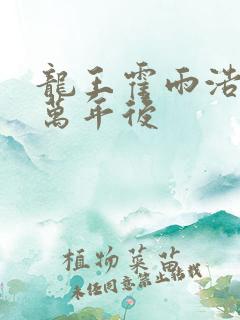 龍王霍雨浩
萬年後
植物菜苗
未经同意禁止转载